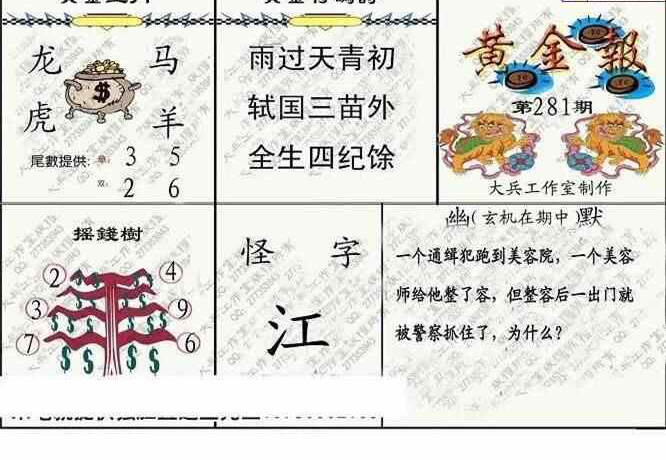 龙 马
虎 羊
尾數提供: 单: 3 5
双: 2 6
雨过天青初
轼国三苗外
全生四纪馀
黄金報
第281期
大兵工作室制作
摇錢樹
2 4
3 9
7 6
怪 字
江
幽(玄机在期中)默
一个通缉犯跑到美容院，一个美容
师给他整了容，但整容后一出门就
被警察抓住了，为什么？